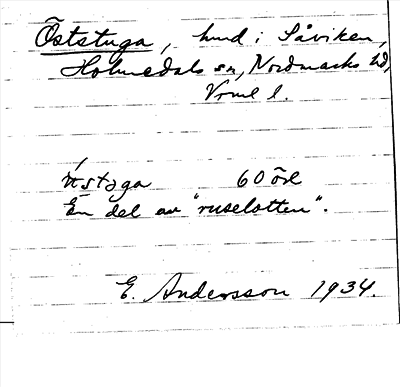 Öststuga, hmd i Såviken,
Holmedals sn, Nordmarks hd,
Vrml l.
ǘstəga 60 öre
En del av "ruselotten".
E. Andersson 1934.